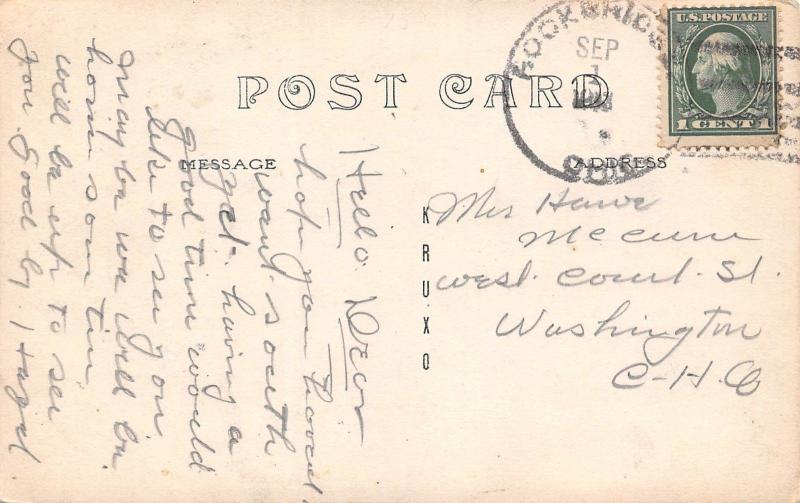 POST CARD
MESSAGE
ADDRESS
U.S. POSTAGE
1 CENT 1
ROCKBRIDGE
SEP
1
OHIO
KRUXO
Hello
hope you havent
went south
yet. having a
good time would
like to see you
may be we will be
home som time
will be up to see
you Good by. Hazel
Mrs
McCune
West. Court. St.
Washington
C-H. O